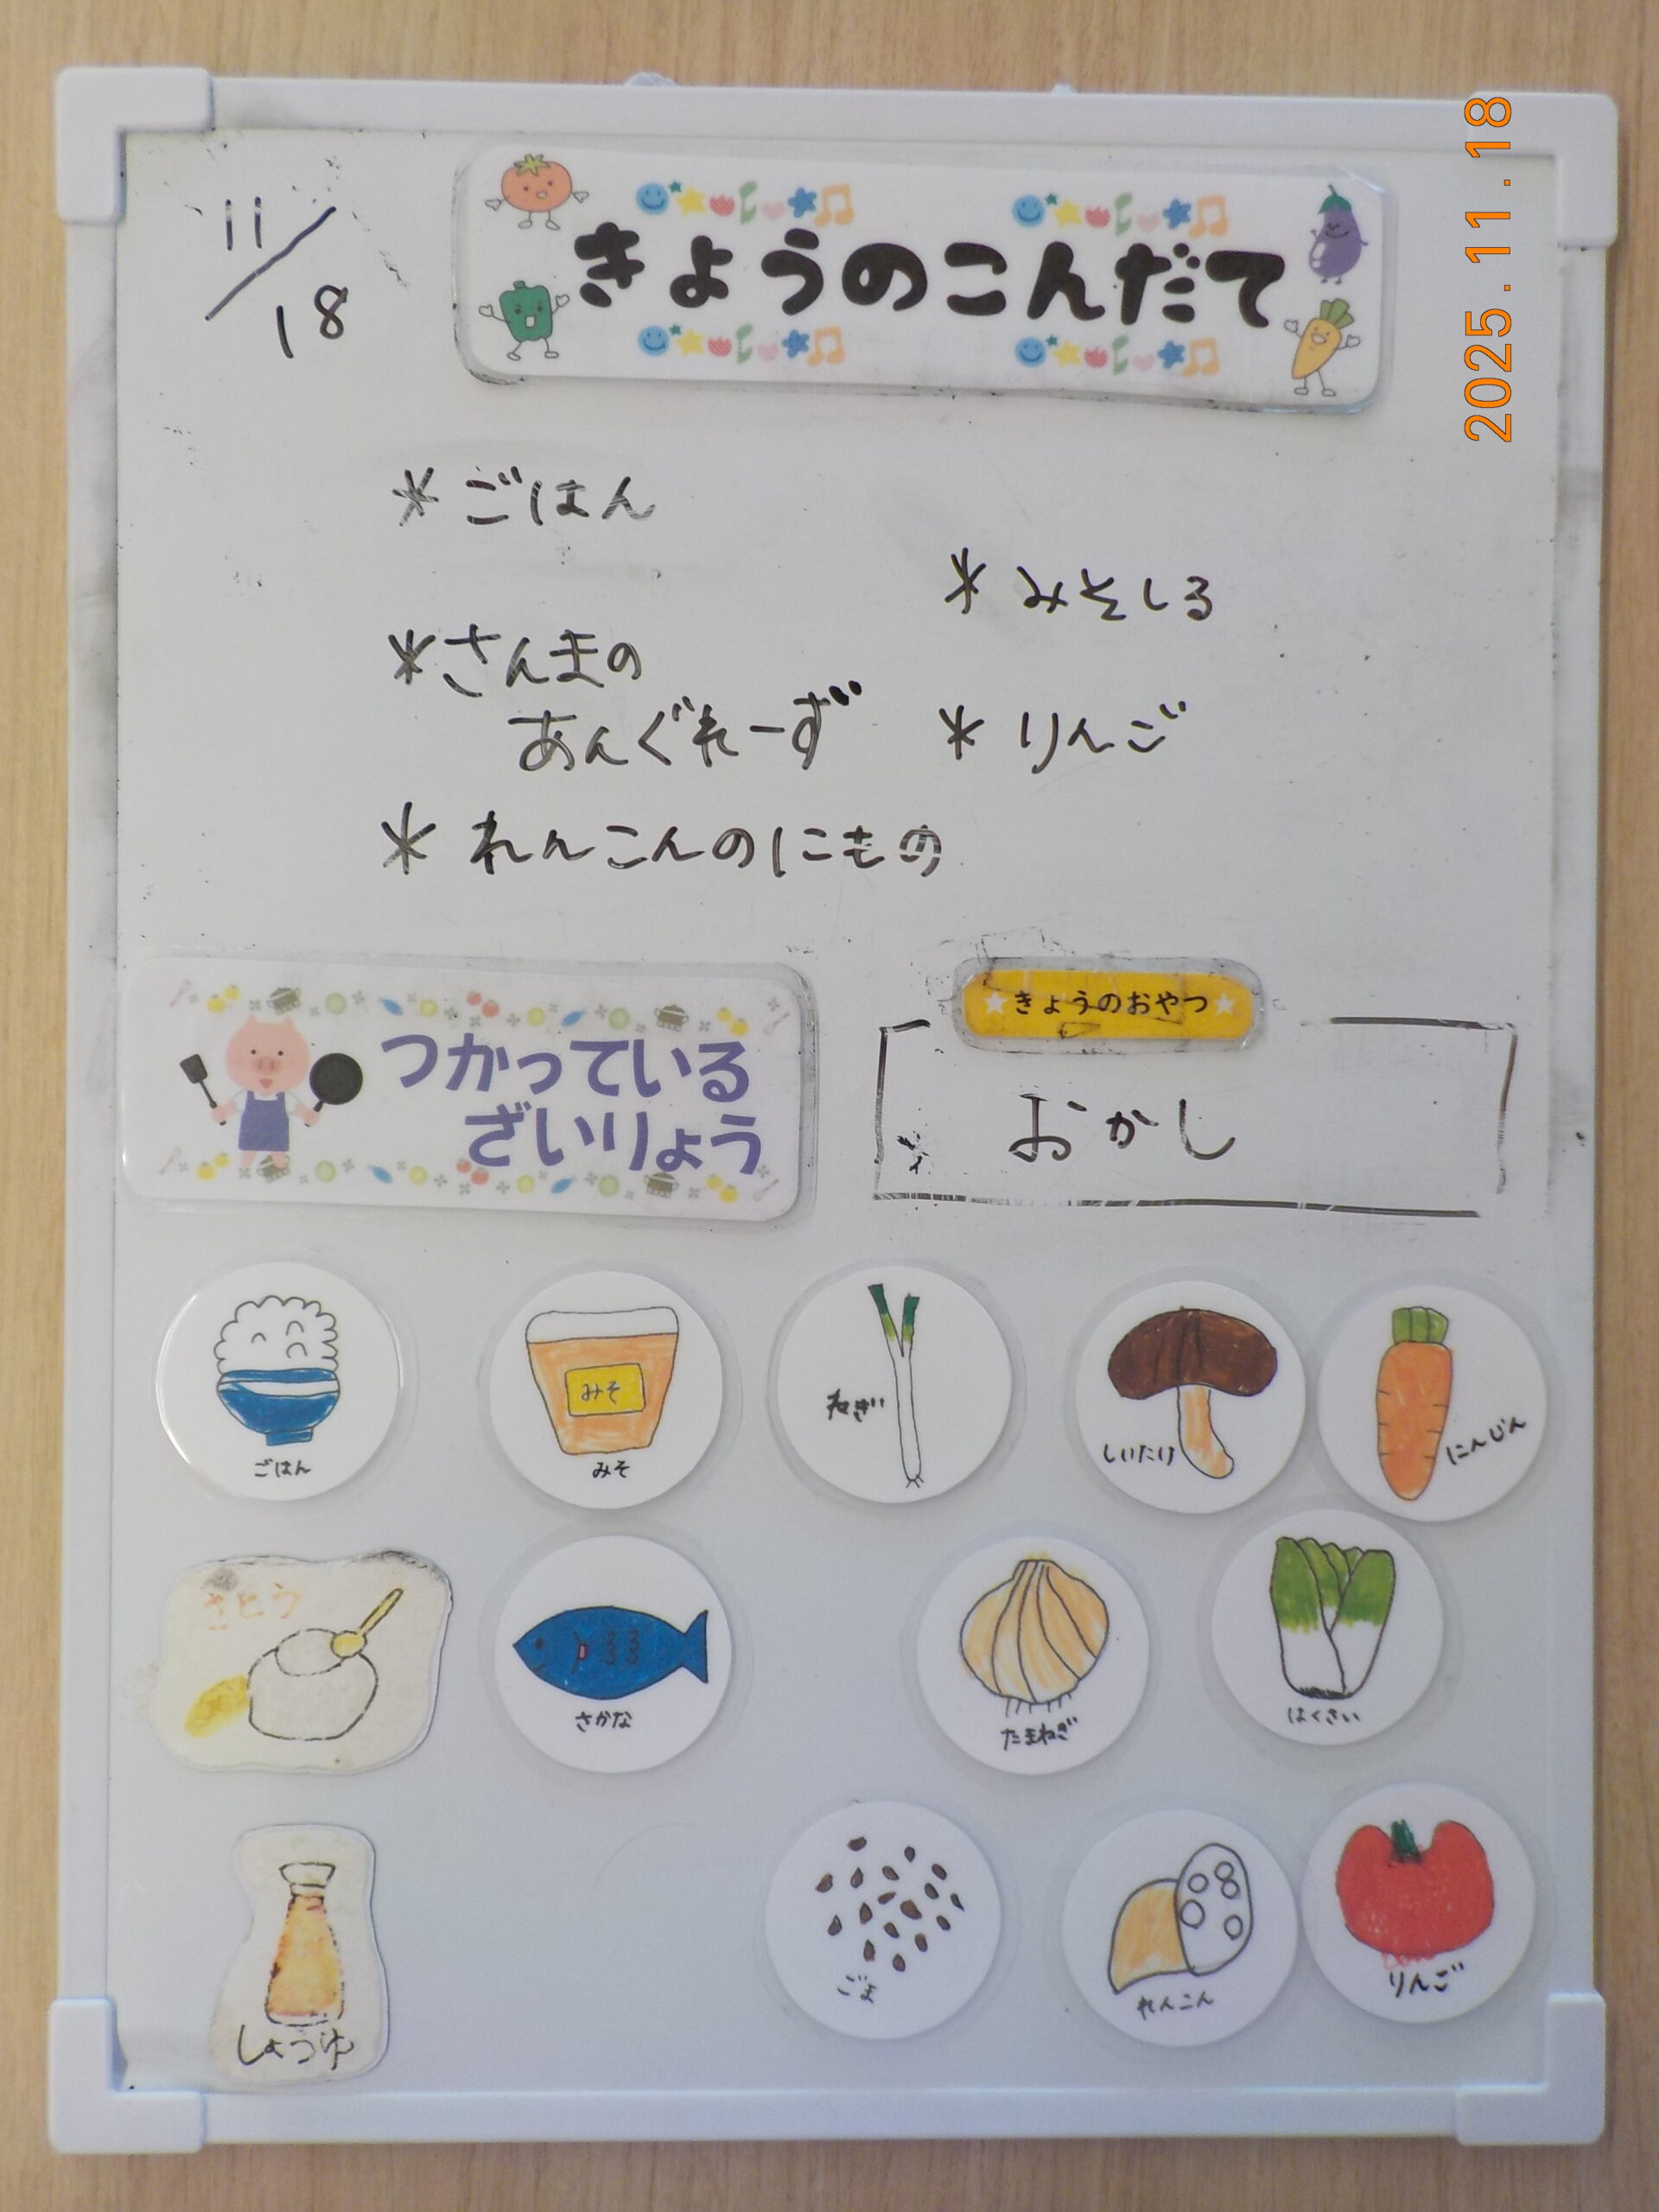 11/18
きょうのこんだて
2025.11.18
＊ごはん
＊さんまの
あんぐれーず
＊れんこんのにもの
＊みそしる
＊りんご
つかっている
ざいりょう
きょうのおやつ
おかし
ごはん
みそ
みそ
ねぎ
しいたけ
にんじん
さとう
さかな
たまねぎ
はくさい
しょうゆ
ごま
れんこん
りんご